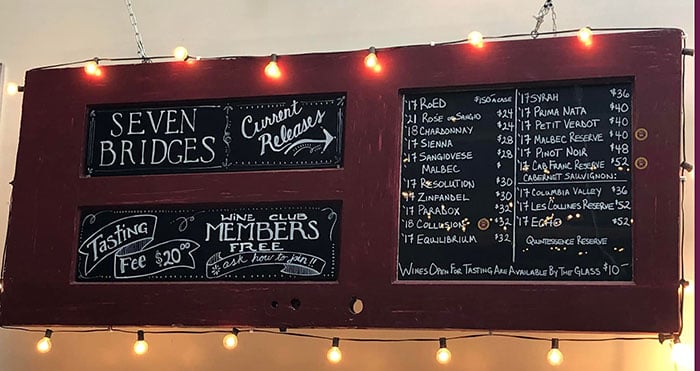 SEVEN
BRIDGES
Current
Releases
Tasting
Fee $20.00
WINE CLUB
MEMBERS
FREE
ask how to join!!
'17 ROED $150 A CASE
'21 ROSE OF SANGIO $24
'18 CHARDONNAY $24
'17 SIENNA $28
'17 SANGIOVESE $28
MALBEC
'17 RESOLUTION $30
'17 ZINFANDEL $30
'17 PARADOX $32
'18 COLLUSION $32
'17 EQUILIBRIUM $32
'17 SYRAH $36
'17 PRIMA NATA $40
'17 PETIT VERDOT $40
'17 MALBEC RESERVE $40
'17 PINOT NOIR $48
'17 CAB FRANC RESERVE $52
CABERNET SAUVIGNON:
'17 COLUMBIA VALLEY $36
'17 LES COLLINES RESERVE $52
'17 $52
QUINTESSENCE RESERVE
WINES OPEN FOR TASTING ARE AVAILABLE BY THE GLASS $10-